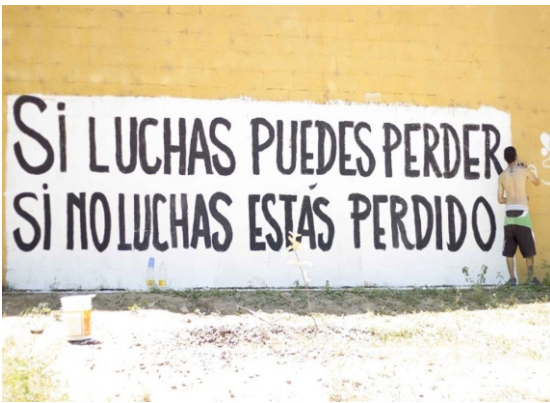 Si LUCHAS PUEDES PERDER
Si NO LUCHAS ESTÁS PERDIDO